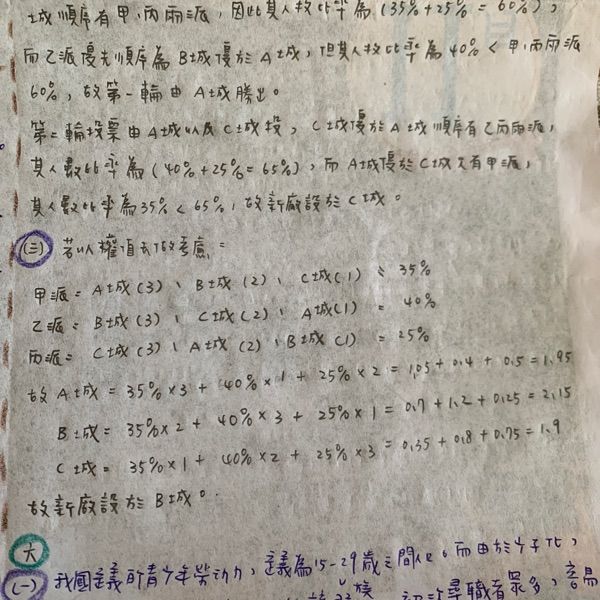 城順序有甲、丙兩派，因此其人數比率為(35%+25%=60%)，
而乙派優先順序為B城優於A城，但其人數比率為40%<甲、丙兩派
60%，故第一輪由A城勝出。
第二輪投票由A城以及C城投，C城優於A城順序有乙丙兩派，
其人數比率為(40%+25%=65%)，而A城優於C城只有甲派，
其人數比率為35%<65%，故新廠設於C城。
(三) 若以權值去做考慮：
甲派=A城(3)、B城(2)、C城(1) = 35%
乙派=B城(3)、C城(2)、A城(1) = 40%
丙派=C城(3)、A城(2)、B城(1) = 25%
故A城=35%×3+40%×1+25%×2=1.05+0.4+0.5=1.95
B城=35%×2+40%×3+25%×1=0.7+1.2+0.25=2.15
C城=35%×1+40%×2+25%×3=0.35+0.8+0.75=1.9
故新廠設於B城。
六
(一) 我國定義所青少年勞動力，定義為15-29歲之間人口。而由於少子化，
初次尋職者眾多，